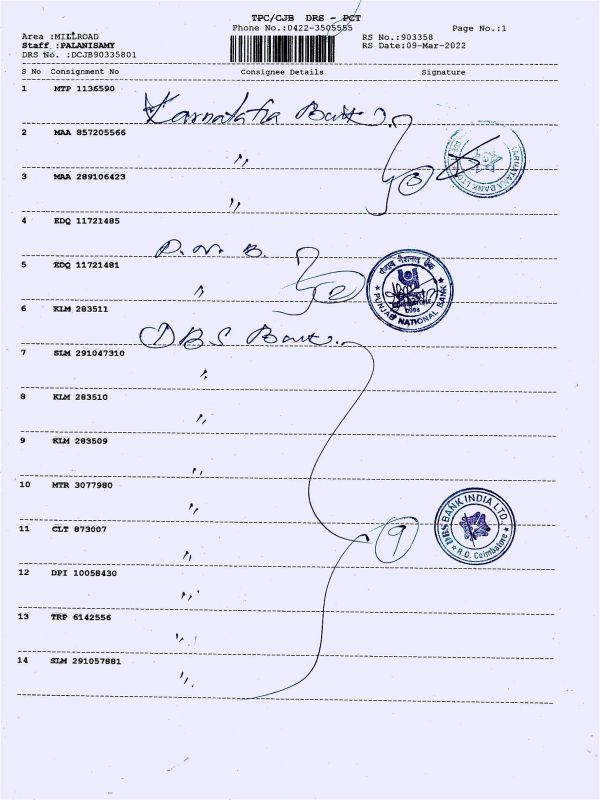 TPC/CJB DRS - PCT
Phone No.:0422-3505555
Page No.:1
Area :MILLROAD
Staff :PALANISAMY
DRS No. :DCJB90335801
RS No.:903358
RS Date:09-Mar-2022
S No Consignment No Consignee Details Signature
1 MTP 1136590
Karnataka Bank
2 MAA 857205566
"
3 MAA 289106423
"
3
KARNATAKA BANK LTD
4 EDQ 11721485
P. N. B.
5 EDQ 11721481
"
2
पंजाब नैशनल बैंक
PUNJAB NATIONAL BANK
6 KLM 283511
DBS Bank
7 SLM 291047310
"
8 KLM 283510
"
9 KLM 283509
"
10 MTR 3077980
"
11 CLT 873007
"
9
DBS BANK INDIA LTD.
R.O. Coimbatore
12 DPI 10058430
"
13 TRP 6142556
"
14 SLM 291057881
"